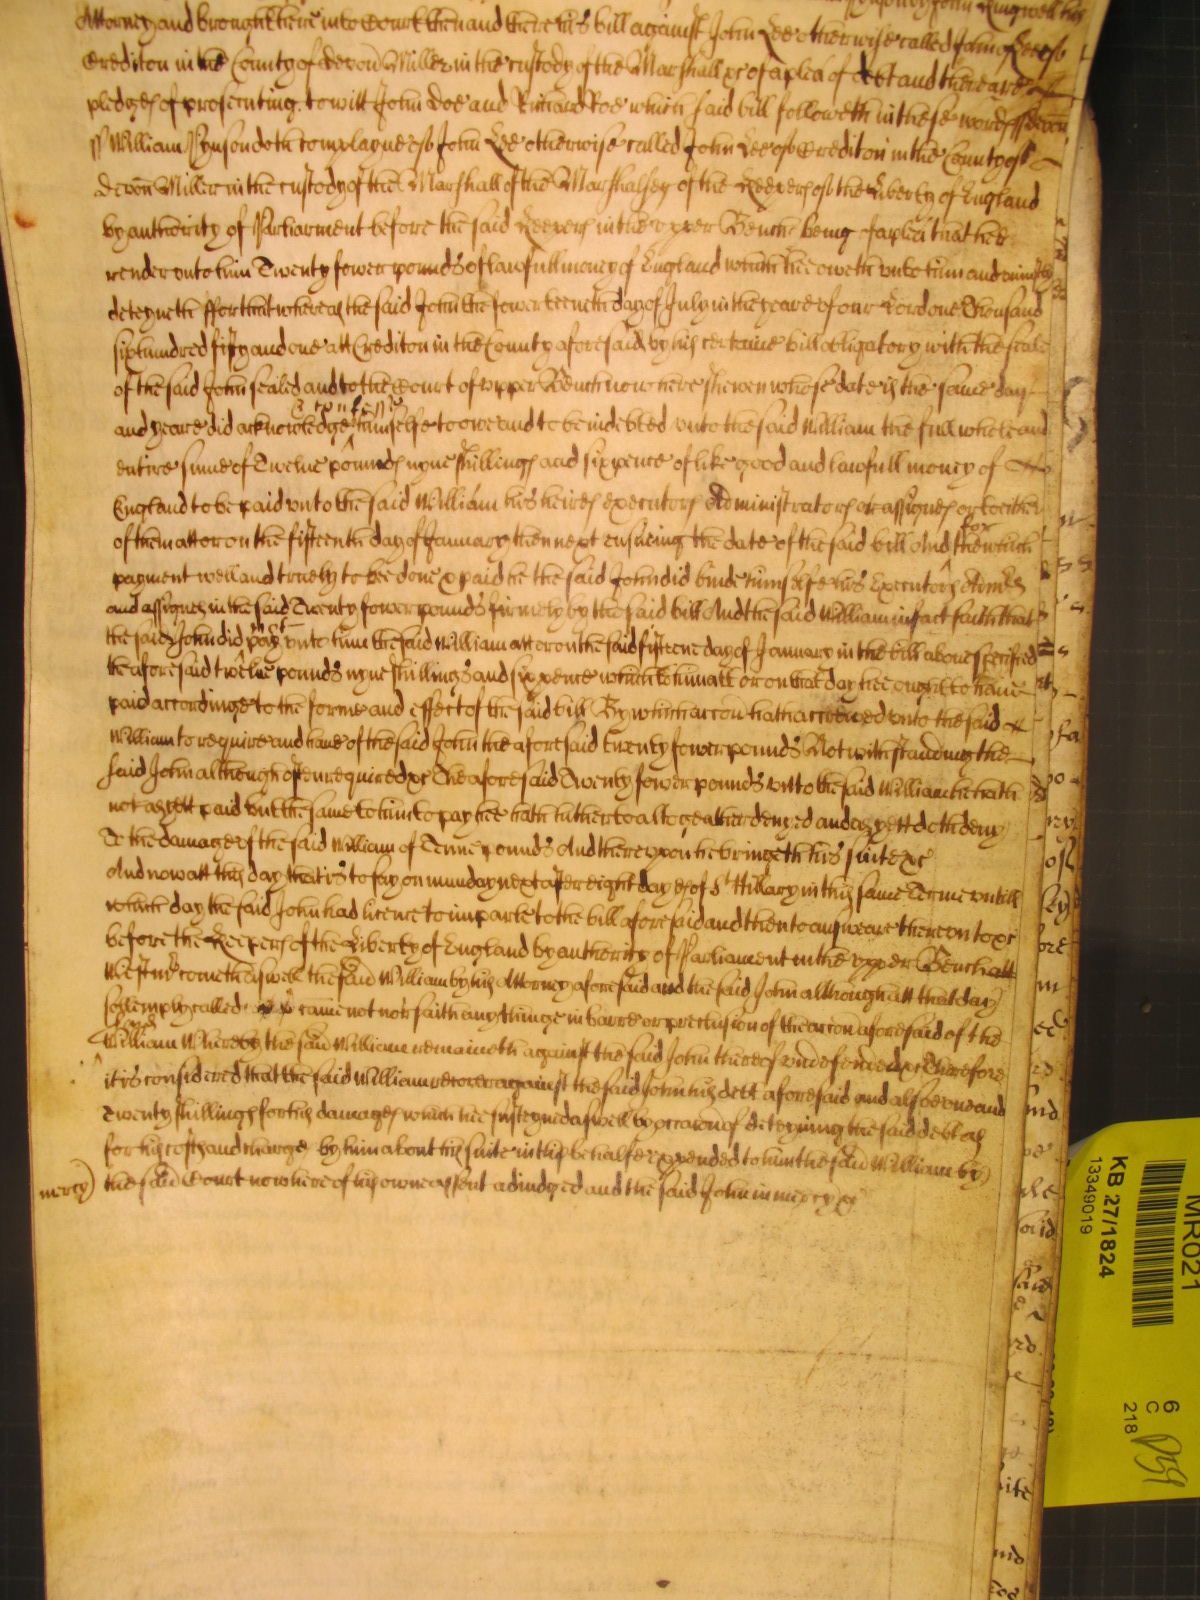 John Ringwell his
Attorney and brought here into Court then and there his bill against John Lee otherwise called John Lee of
Crediton in the County of Devon Miller in the custody of the Marshall &c of a plea of debt and there are
pledges of prosecuting to witt John Doe and Richard Roe which said bill followeth in these words ss Devon
ss William Pynson doth complayne of John Lee otherwise called John Lee of Crediton in the County of
Devon Miller in the custody of the Marshall of the Marshalsey of the Keepers of the Liberty of England
by authority of Parliament before the said Keepers in the upper Bench being of a plea that hee
render unto him Twenty fower pounds of lawfull money of England which hee oweth unto him and uniustly
deteyneth ffor that whereas the said John the fowerteenth day of July in the yeare of our Lord one Thousand
six hundred fifty and one att Crediton in the County aforesaid by his certaine bill obligatory with the seale
of the said John sealed and to the Court of upper Bench now here shewen whose date is the same day
and yeare did acknowledge & confesse himselfe to owe and to be indebted unto the said William the full whole and
entire sume of Twelve pounds nyne shillings and sixpence of like good and lawfull money of
England to be paid unto the said William his heires executors Administrators or assignes or to either
of them att or on the fifteenth day of January then next ensueing the date of the said bill And for the which
payment well and truely to bee done & paid he the said John did binde himselfe his Executors Adm
and assignes in the said Twenty fower pounds firmely by the said bill And the said William in fact saith that
the said John did not pay unto him the said William att or on the said fifteene day of January in the bill above specified
the aforesaid twelve pounds nyne shillings and sixpence which to him att or on that day hee ought to have
paid accordinge to the forme and effect of the said bill By which accon hath accrewed unto the said
William to require and have of the said John the aforesaid twenty fower pounds Notwithstanding the
said John although often required &c The aforesaid Twenty fower pounds unto the said William he hath
not as yett paid but the same to him to pay hee hath hitherto altogeather denyed and as yett doth deny
To the damage of the said William of Tenne pounds And thereupon he bringeth his suite &c
And now att this day that is to say on munday next after eight dayes of St Hillary in this same Terme untill
which day the said John had licence to imparle to the bill aforesaid and then to answeare thereonto &c
before the Keepers of the Liberty of England by authority of Parliament in the upper Bench att
Westmr cometh aswell the said William by his Attorney aforesaid and the said John although att that day
solemply called came not nor saith any thinge in barre or preclusion of the accon aforesaid of the
said William Whereby the said William remaineth against the said John thereof undefended &c Therefore
it is considered that the said William recover against the said John his debt aforesaid and also one and
Twenty shillings for his damages which hee susteyned aswell by occasion of deteyning the said debt as
for his costs and charges by him about his suite in this behalfe expended to him the said William by
mercy) the said Court now here of his owne assent adiudged and the said John in mercy &c
MR021
KB 27/1824
13349019
6
C
218